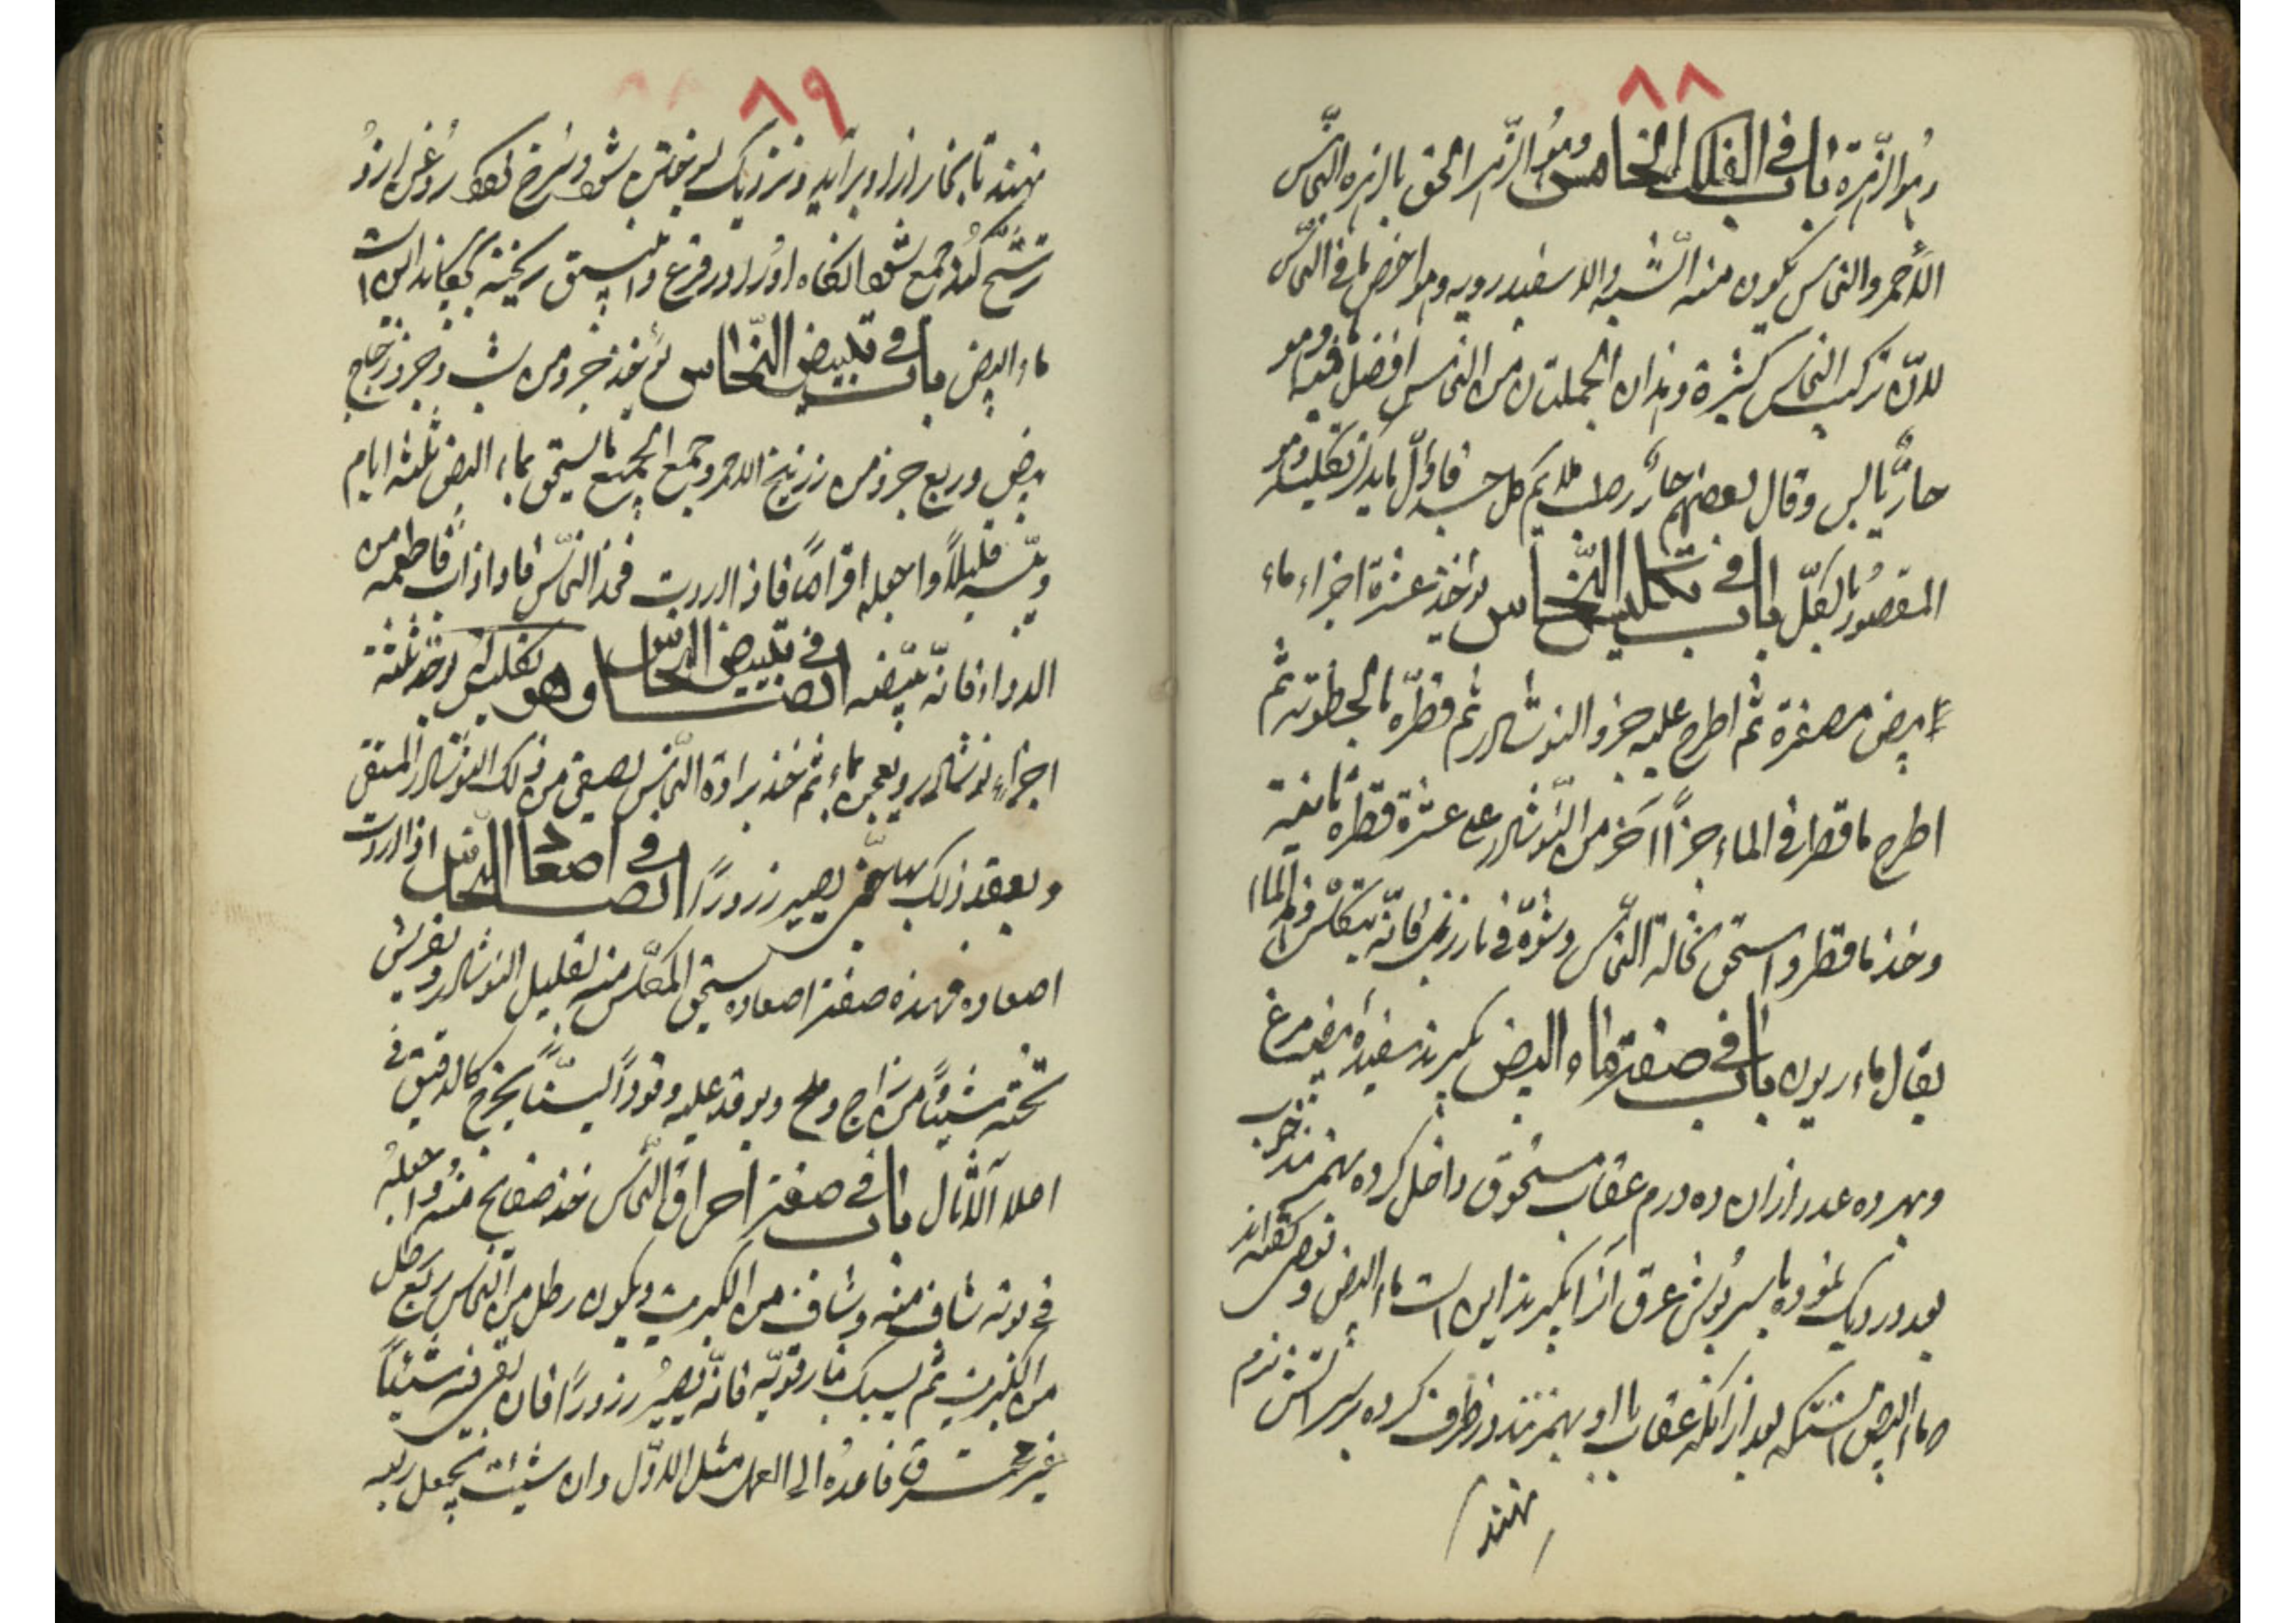 ٨٨
وهو الزهرة باب في الفلك الخامس وهو الزهر الحق بالزهره النحاس
الأحمر والنحاس يكون منه الشبه والاسفيدرويه وهو اخص ما في النحاس
لانّ تركيب النحاس كثيرة وهذان الجملتان من النحاس افضل فيه وهو
حارّ يابس وقال بعضهم حارّ رطب ملايم كل جسد فاوّل ما يدبّر تكليسه وهو
المقصود بالكلّ باب في تكليس النّحاس يؤخذ عشرة اجزاء ماء
بيض مصفرة ثم اطرح عليه جزو النوشادر ثم قطّره بالخطوته ثم
اطرح ما قطر في الماء جزأ آخر من النّوشادر على عشرة قطره ثانية
وخذ ما قطر واسحق نخالة النّحاس وشوّه في نار زبل فانّه يتكلّس وهذا الماء
يقال ماء ريون باب في صفة ماء البيض بگيرند سفيدهٔ بيضهٔ مرغ
وبهر ده عدد از ان ده درم عقاب مسحوق داخل كرده بهم زنند خوب
بعد در ديک نموده با سرپوش عرق آنرا بگيرند اين است ماء البيض وبعضى گفته اند
ماء البيض آنستكه بعد از انكه عقاب با او بهم زنند در ظرف كرده بر سر آتش نرم
نهند
٨٩
نهند تا بخار از او برآيد ونزديک بسوختن شود وسرخ گردد روغنى از او
ترشّح كند جمع شود انگاه اورا در قرع وانبيق ريخته بچكانند اين است
ماء البيض باب في تبييض النّحاس يؤخذ جزو من شب وجزو زجاج
بيض وربع جزو من زرنيخ الاحمر وجمع الجميع بالسحق بماء البيض ثلثه ايام
ويبّسه قليلاً واجعله اقراصاً فاذا اردت فخذ النحاس فاذا ذاب فاطعمه من
الدواء فانّه يبيّضه ايضاً في تبييض النحاس وهو تكليس يؤخذ ثلثة
اجزاء نوشادر ويعجن بماء ثم خذ برادة النّحاس يصفى من ذلك النوشادر المنقى
ويعقد ذلك يصير زرورًا ايضاً في اصعاد النحاس اذا اردت
اصعاده فهذه صفة اصعاده يسحق المكلّس منه بقليل النوشادر ويفرش
تحته شيئاً من زاج وملح ويوقد عليه وقوداً ليّناً يخرج كالدقيق في
اعلا الآثال باب في صفة احراق النّحاس خذ صفايح منه واجعله
في بوته شاف منه وشاف من الكبريت ويكون رطل من النحاس ربع رطل
من الكبريت ثم يسبك بنار قويّه فانّه يصير زرورًا فان بقى منه شيئاً
غير محترق فاعده الى العمل مثل الاوّل وان شيئت تجعل ربعه